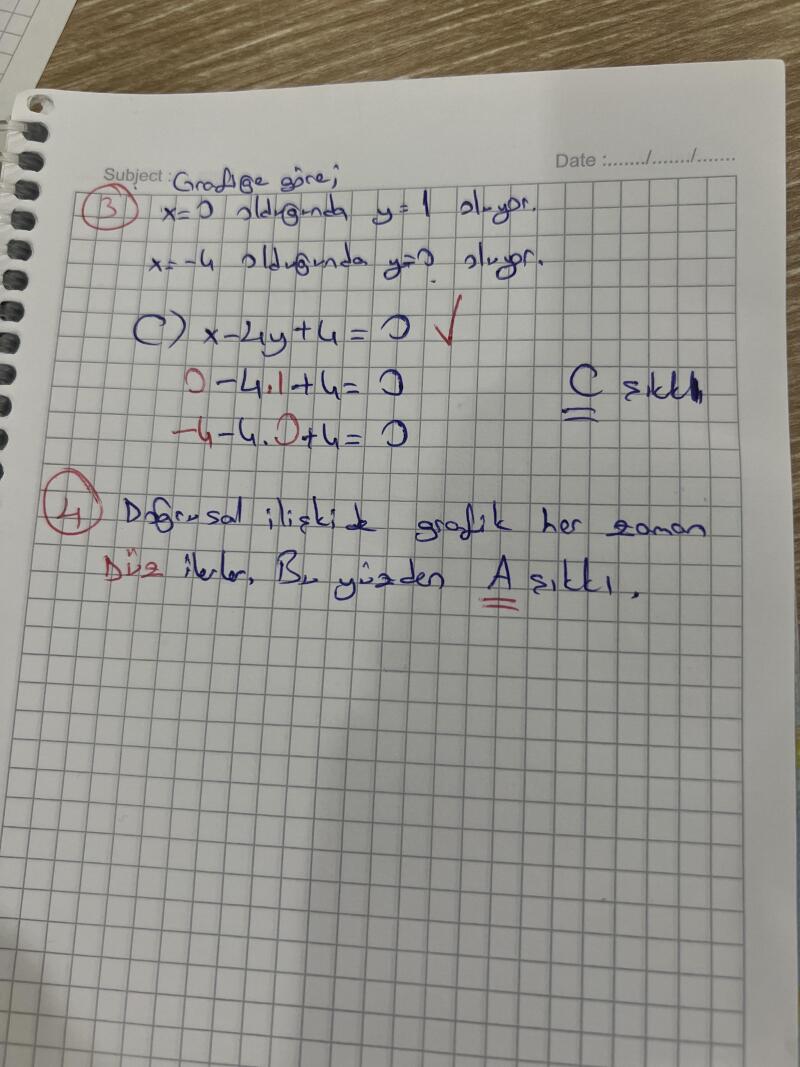 Subject : Grafiğe göre;
Date :......./......./.......
3 x=0 olduğunda y=1 oluyor.
x=-4 olduğunda y=0 oluyor.
C) x-4y+4=0 ✓
0-4.1+4=0
C şıkkı
-4-4.0+4=0
4 Doğrusal ilişkide grafik her zaman
Düz ilerler. Bu yüzden A şıkkı.